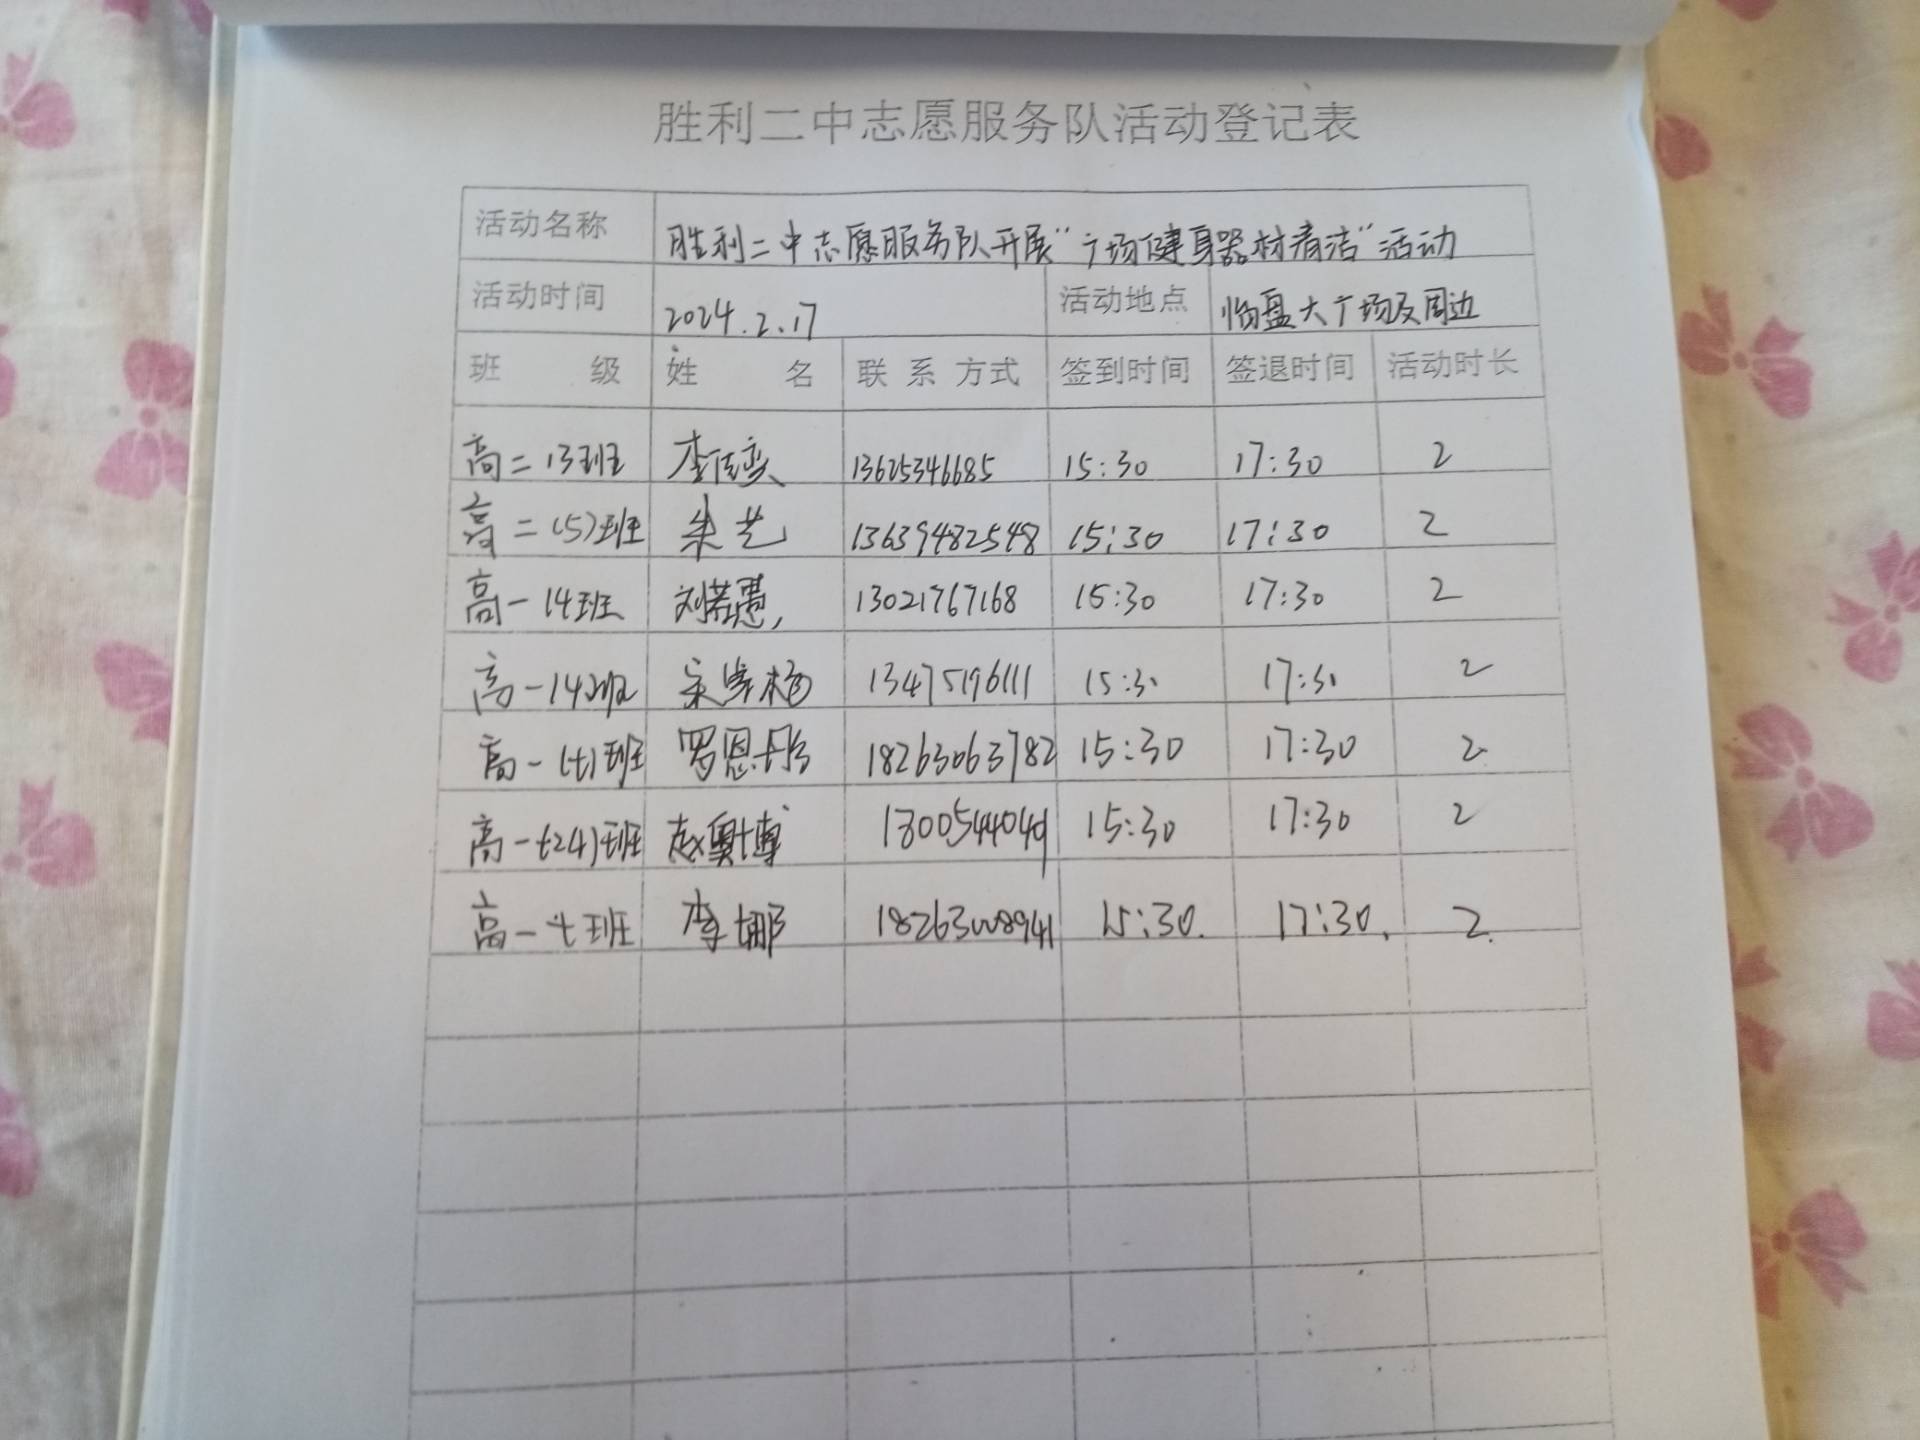 胜利二中志愿服务队活动登记表
活动名称 胜利二中志愿服务队开展“广场健身器材清洁”活动
活动时间 2024.2.17 活动地点 临盘大广场及周边
班 级 姓 名 联系方式 签到时间 签退时间 活动时长
高二13班 李佳奕 13625346685 15:30 17:30 2
高二(5)班 朱艺 13639482548 15:30 17:30 2
高一14班 刘若愚, 13021767168 15:30 17:30 2
高一14班 宋 杨 13475196111 15:30 17:30 2
高一(七)班 罗恩彤 18263063782 15:30 17:30 2
高一(24)班 赵奥博 15:30 17:30 2
高一七班 李娜 18263008941 15:30. 17:30. 2.